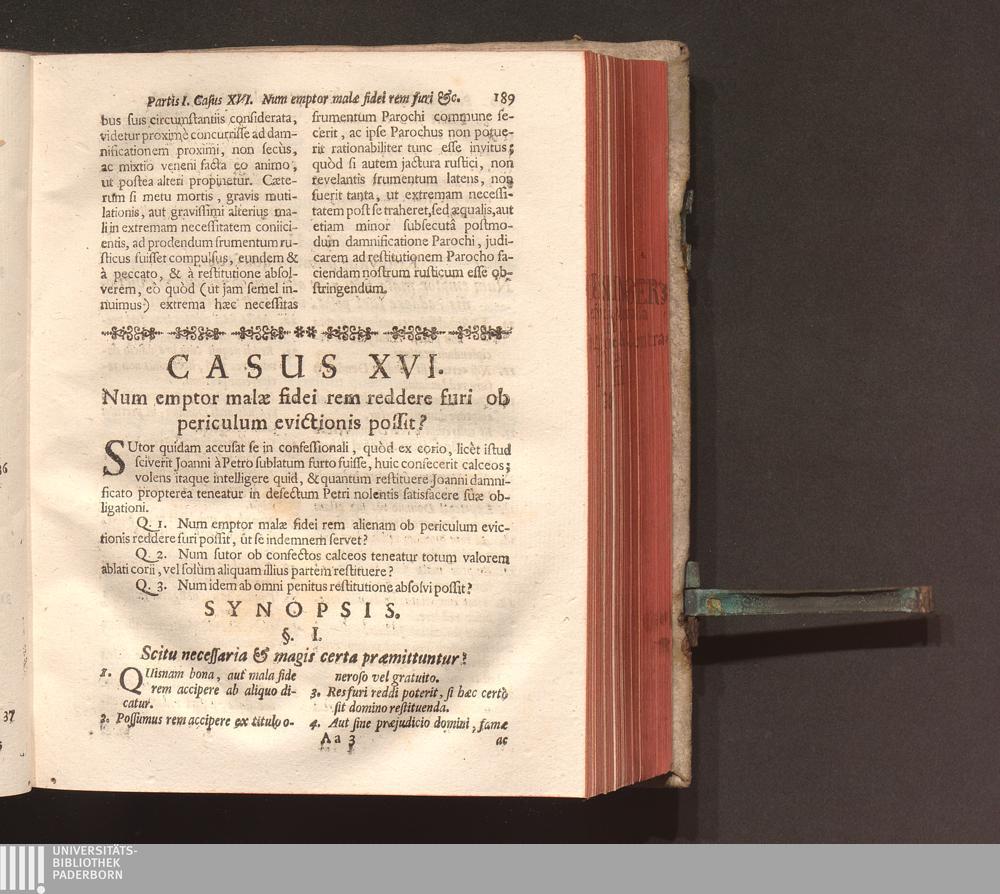 Partis I. Casus XVI. Num emptor malæ fidei rem furi &c. 189
bus suis circumstantiis considerata,
videtur proximè concurrisse ad dam-
nificationem proximi, non secùs,
ac mixtio veneni facta eo animo,
ut postea alteri propinetur. Cæte-
rùm si metu mortis, gravis muti-
lationis, aut gravissimi alterius ma-
li in extremam necessitatem coniici-
entis, ad prodendum frumentum ru-
sticus fuisset compulsus, eundem &
à peccato, & à restitutione absol-
verem, eò quòd (ut jam semel in-
nuimus) extrema hæc necessitas
frumentum Parochi commune fe-
cerit, ac ipse Parochus non potue-
rit rationabiliter tunc esse invitus;
quòd si autem jactura rustici, non
revelantis frumentum latens, non
fuerit tanta, ut extremam necessi-
tatem post se traheret, sed æqualis, aut
etiam minor subsecutâ postmo-
dum damnificatione Parochi, judi-
carem ad restitutionem Parocho fa-
ciendam nostrum rusticum esse ob-
stringendum.
CASUS XVI.
Num emptor malæ fidei rem reddere furi ob
periculum evictionis possit?
SUtor quidam accusat se in confessionali, quòd ex corio, licèt istud
sciverit Joanni à Petro sublatum furto fuisse, huic confecerit calceos;
volens itaque intelligere quid, & quantum restituere Joanni damni-
ficato propterea teneatur in defectum Petri nolentis satisfacere suæ ob-
ligationi.
Q. 1. Num emptor malæ fidei rem alienam ob periculum evic-
tionis reddere furi possit, ût se indemnem servet?
Q. 2. Num sutor ob confectos calceos teneatur totum valorem
ablati corii, vel solùm aliquam illius partem restituere?
Q. 3. Num idem ab omni penitus restitutione absolvi possit?
SYNOPSIS.
§. I.
Scitu necessaria & magis certa præmittuntur?
1. QUisnam bona, aut mala fide
rem accipere ab aliquo di-
catur.
2. Possumus rem accipere ex titulo o-
neroso vel gratuito.
3. Res furi reddi poterit, si hæc certò
sit domino restituenda.
4. Aut sine præjudicio domini, famæ
Aa 3 ac
36
37
UNIVERSITÄTS-
BIBLIOTHEK
PADERBORN